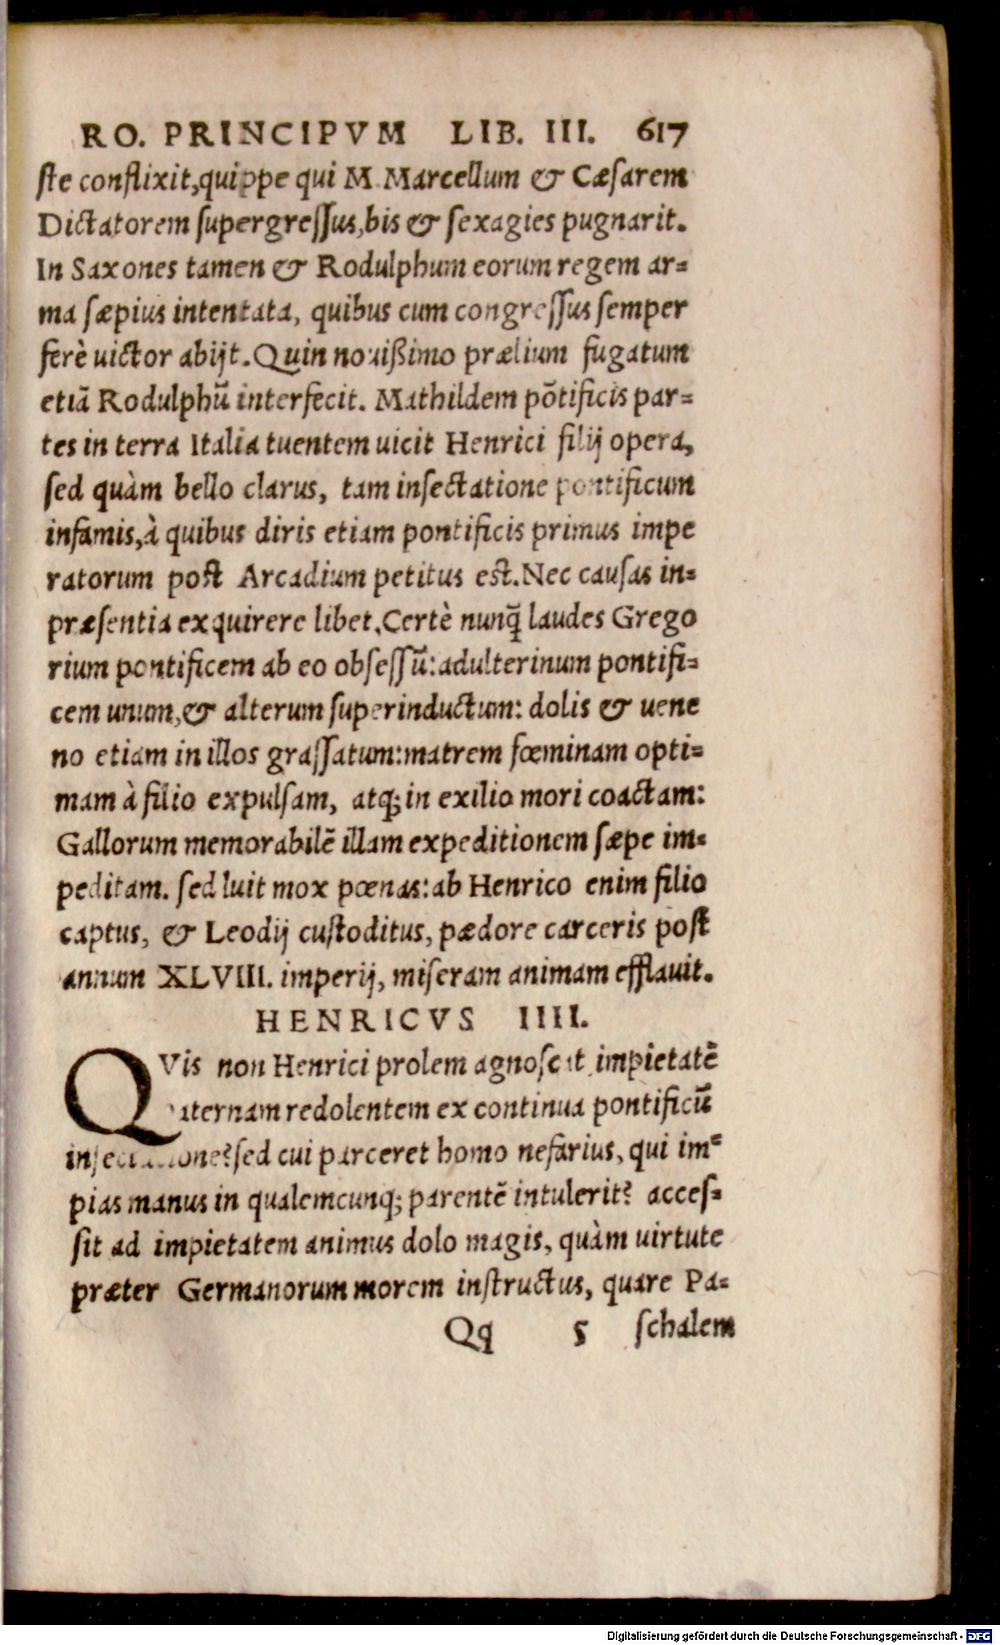 RO. PRINCIPVM LIB. III. 617
ſte conflixit, quippe qui M. Marcellum & Cæſarem
Dictatorem ſupergreſſus, bis & ſexagies pugnarit.
In Saxones tamen & Rodulphum eorum regem ar=
ma ſæpius intentata, quibus cum congreſſus ſemper
ferè uictor abijt. Quin nouißimo prælium fugatum
etiā Rodulphū interfecit. Mathildem pōtificis par=
tes in terra Italia tuentem uicit Henrici filij opera,
ſed quàm bello clarus, tam inſectatione pontificum
infamis, à quibus diris etiam pontificis primus impe
ratorum poſt Arcadium petitus eſt. Nec cauſas in=
præſentia exquirere libet. Certè nunq̃ laudes Grego
rium pontificem ab eo obſeſſū: adulterinum pontifi=
cem unum, & alterum ſuperinductum: dolis & uene
no etiam in illos graſſatum: matrem fœminam opti=
mam à filio expulſam, atq; in exilio mori coactam:
Gallorum memorabilē illam expeditionem ſæpe im=
peditam. ſed luit mox pœnas: ab Henrico enim filio
captus, & Leodij cuſtoditus, pædore carceris poſt
annum XLVIII. imperij, miſeram animam efflauit.
HENRICVS IIII.
QVis non Henrici prolem agnoſcat impietatē
paternam redolentem ex continua pontificū
inſectatione? ſed cui parceret homo nefarius, qui im=
pias manus in qualemcunq; parentē intulerit? acceſ=
ſit ad impietatem animus dolo magis, quàm uirtute
præter Germanorum morem inſtructus, quare Pa=
Qq 5 ſchalem
Digitalisierung gefördert durch die Deutsche Forschungsgemeinschaft - DFG